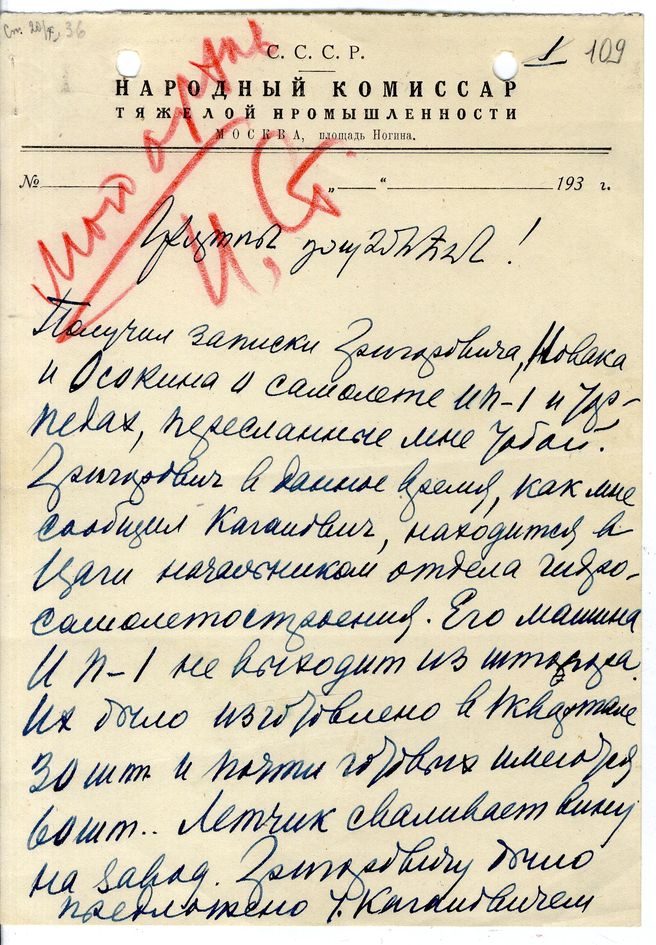 Ст. 20/IX, 36
1 109
С. С. С. Р.
НАРОДНЫЙ КОМИССАР
ТЯЖЕЛОЙ ПРОМЫШЛЕННОСТИ
МОСКВА, площадь Ногина.
№ „ “ 193 г.
Мой архив
И. Ст.
Получил записки Григоровича, Новака
и Осокина о самолете ИП-1 и тор-
педах, пересланные мне тобой.
Григорович в данное время, как мне
сообщил Каганович, находится в
Цаги начальником отдела гидро-
самолетостроения. Его машина
ИП-1 не выходит из штопора.
Их было изготовлено в I квартале
30 шт и почти готовых имеются
60 шт.. Летчик сваливает вину
на завод. Григоровичу было
предложено т. Кагановичем